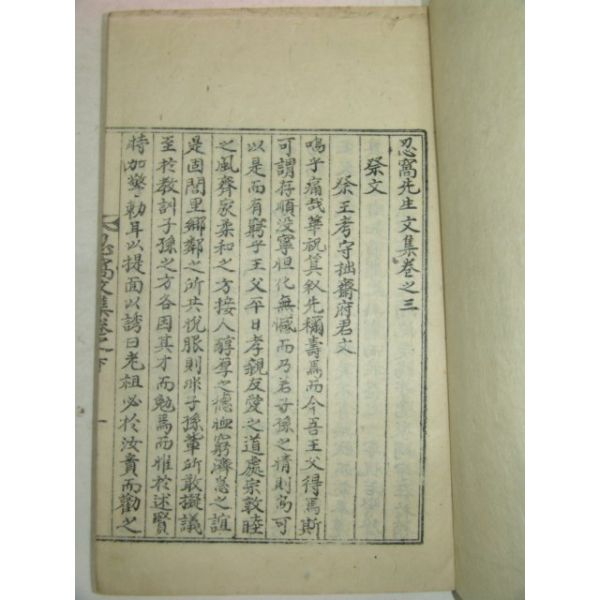 忍窩先生文集卷之三
祭文
祭王考守拙齋府君文
嗚乎痛哉華祝箕敍先稱壽焉而今吾王父得焉斯
可謂存順沒寧怛化無憾而乃若子孫之情則曷可
以是而有窮乎王父平日孝親友愛之道處宗敦睦
之風齊家柔和之方接人醇厚之德恤窮濟急之誼
是固閭里鄉鄰之所共悅服則非子孫輩所敢擬議
至於教訓子孫之方各因其才而勉焉而惟於述賢
時加警勅耳以提面以誘曰老祖必於汝賁而勸之
忍窩文集卷之下 一